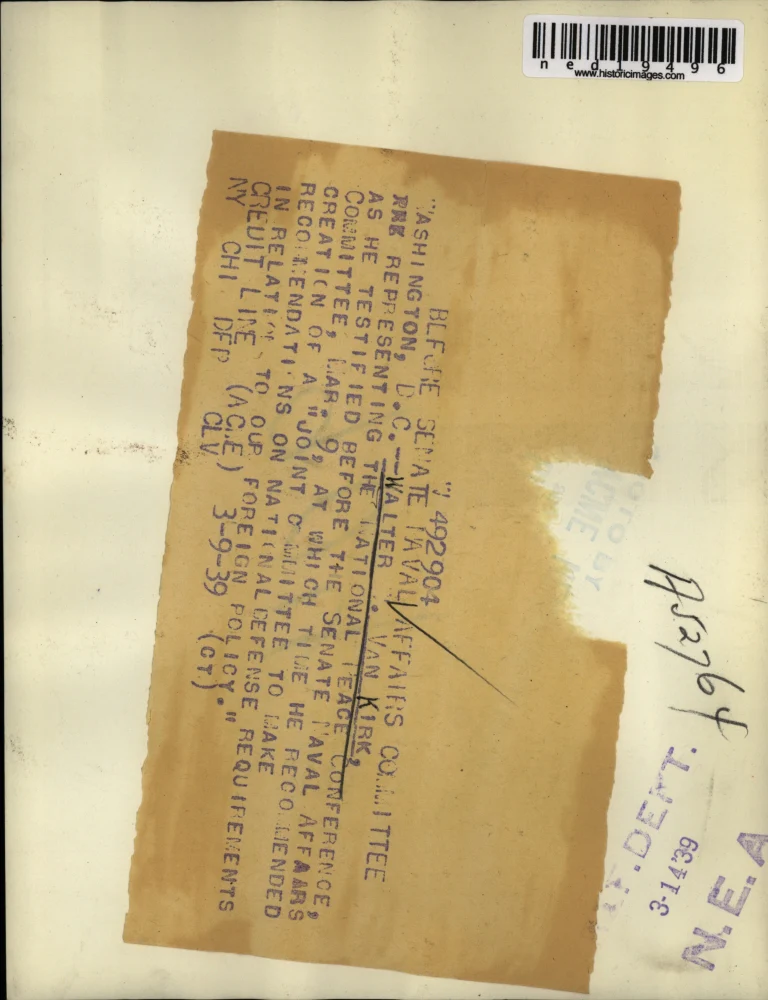 ned19496
www.historicimages.com
W 492904
BEFORE SENATE NAVAL AFFAIRS COMMITTEE
WASHINGTON, D.C.--WALTER . VAN KIRK,
REPRESENTING THE NATIONAL PEACE CONFERENCE,
AS HE TESTIFIED BEFORE THE SENATE NAVAL AFFAARS
COMMITTEE, MAR. 9, AT WHICH TIME HE RECOMMENDED
CREATION OF A "JOINT COMMITTEE TO MAKE
RECOMMENDATIONS ON NATIONAL DEFENSE REQUIREMENTS
IN RELATION TO OUR FOREIGN POLICY."
CREDIT LINE (ACME) 3-9-39 (CT.)
NY CHI DFP CLV
PHOTO BY
ACME
A52764
DEPT.
3-14 39
N.E.A